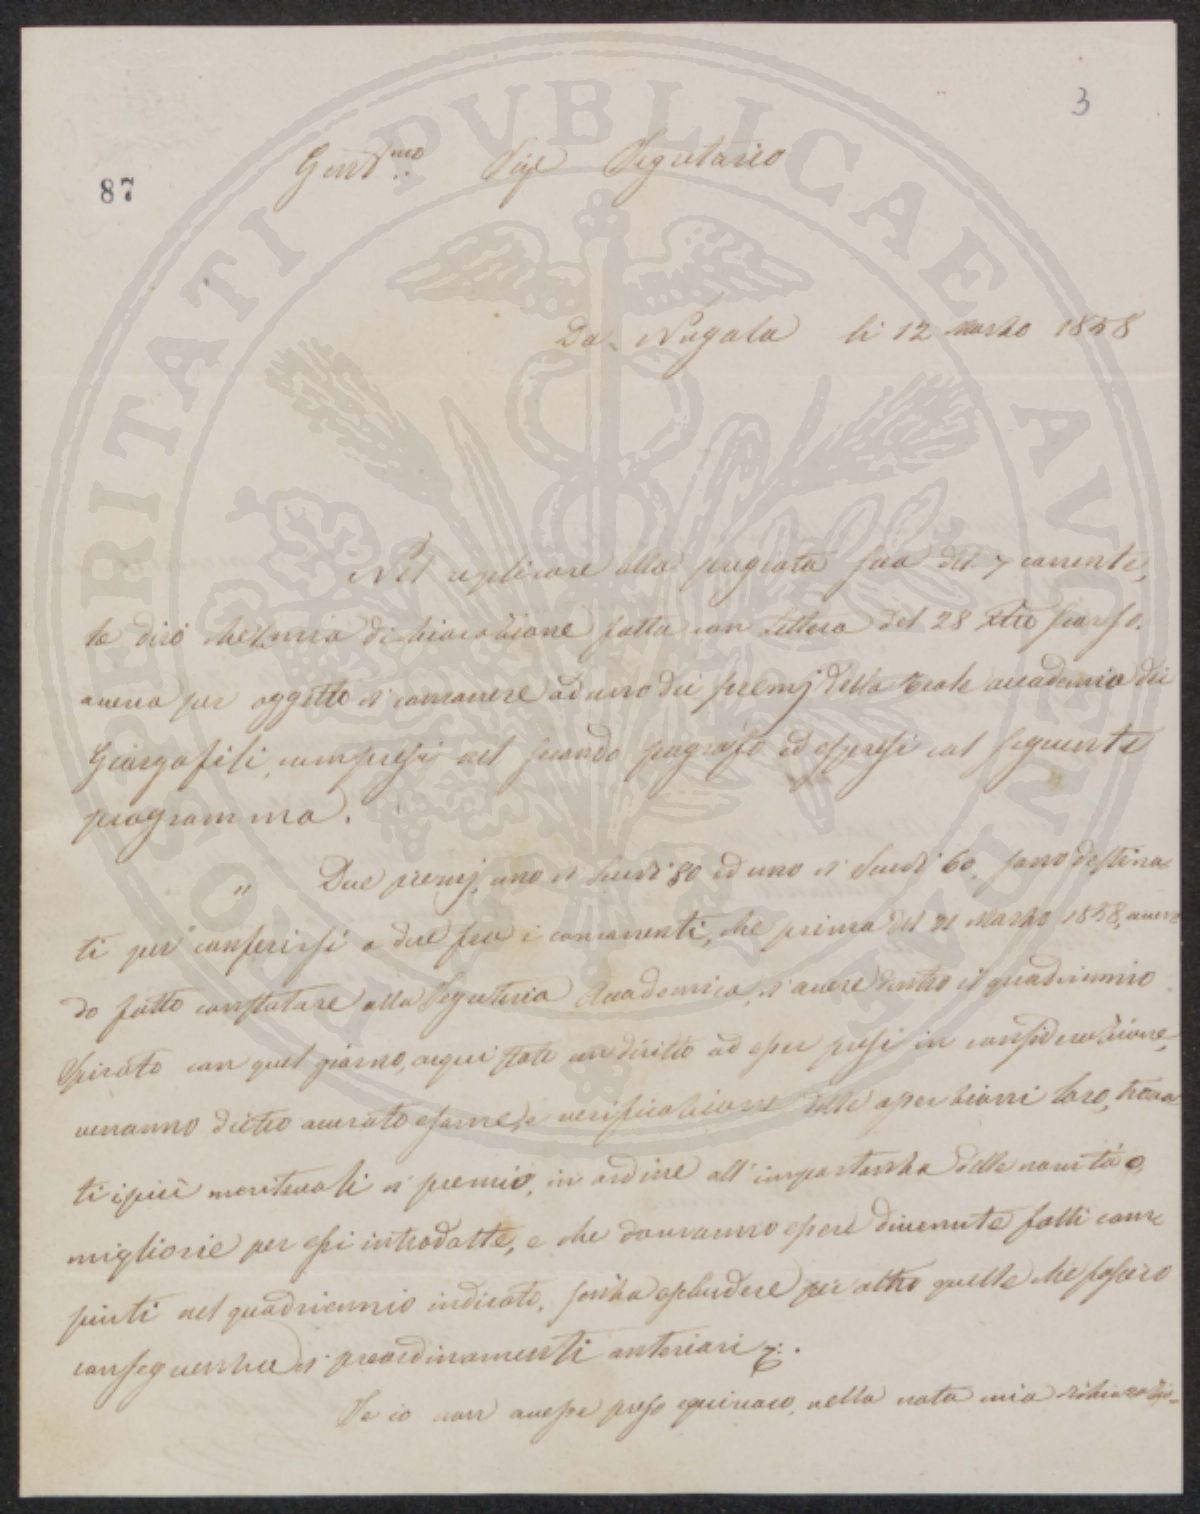 3
87
Gent.mo Sig.e Segretario
Da Nugola li 12 Marzo 1858
Nel replicare alla pregiata sua del 7 corrente,
le dirò che la mia dichiarazione fatta con Lettera del 28 Xbre scorso,
aveva per oggetto di concorrere ad uno dei premj della Reale accademia dei
Georgofili, compresi nel secondo paragrafo ed espressi col seguente
programma.
„ Due premj, uno di Scudi 80 ed uno di Scudi 60, sono destina
ti per conferirsi a due fra i concorrenti, che prima del 31 Marzo 1858, aven
do fatto constatare alla Segreteria Accademica, d'avere dentro il quadriennio
spirato con quel giorno, acquistato un diritto ad esser presi in considerazione,
verranno dietro accurato esame, e verificazione delle operazioni loro, trova
ti i più meritevoli di premio, in ordine all'importanza delle novità o
migliorie per essi introdotte, e che dovranno essere divenute fatti com
piuti nel quadriennio indicato, senza escludere per altro quelle che fossero
conseguenza di preordinamenti anteriori &:.
Se io non avessi preso equivoco, nella nota mia dichiarazio=